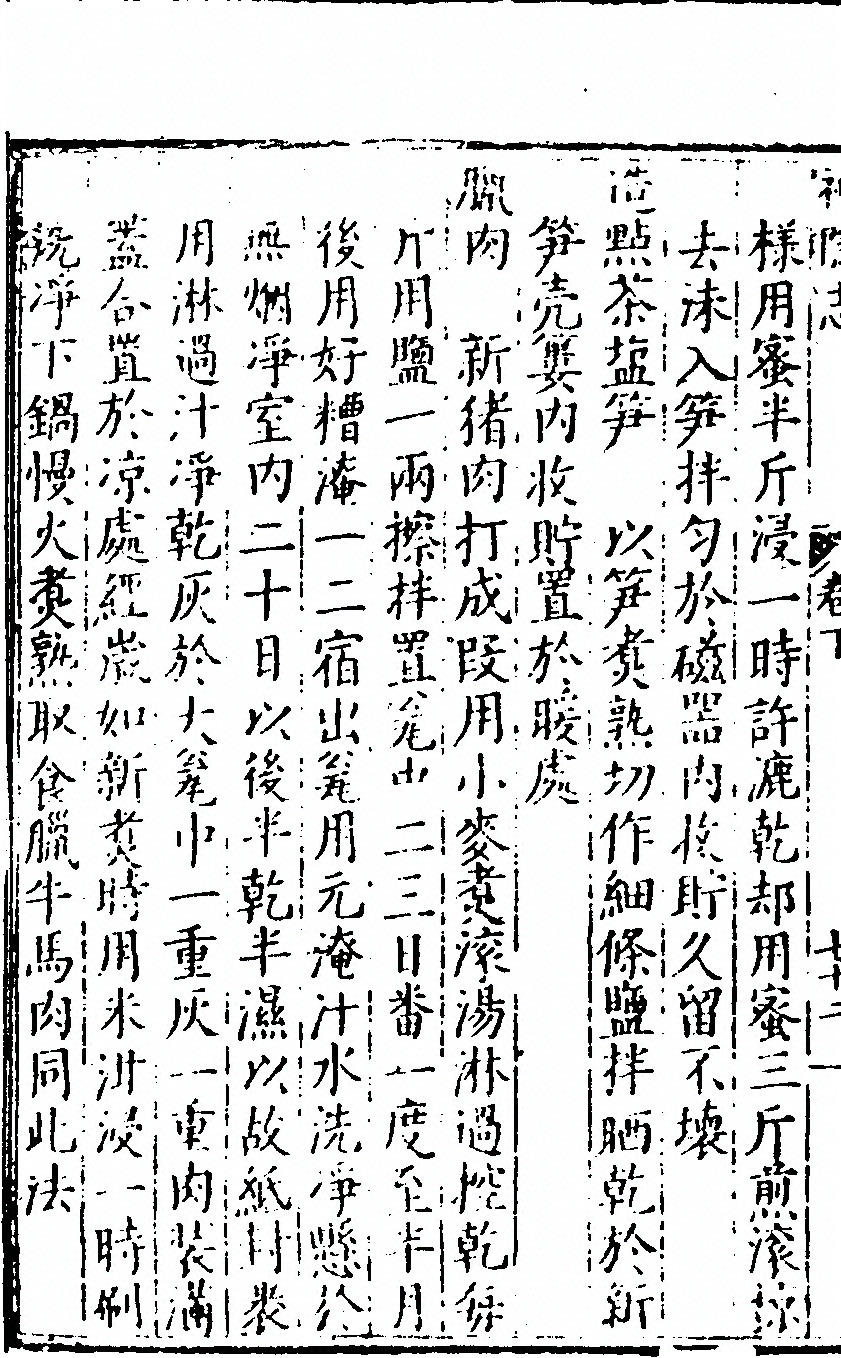 神隱志 卷下 七十二
樣用蜜半斤浸一時許漉乾却用蜜三斤煎滚掠
去沫入笋拌匀於磁器内收貯久留不壞
造點茶塩笋 以笋煑熟切作細條鹽拌晒乾於新
笋壳簍内收貯置於暖處
臘肉 新猪肉打成段用小麥煑滚湯淋過控乾每
斤用鹽一兩擦拌置瓮中二三日番一度至半月
後用好糟淹一二宿出瓮用元淹汁水洗凈懸於
無烟凈室内二十日以後半乾半濕以故紙封裹
用淋過汁凈乾灰於大瓮中一重灰一重肉装满
蓋合置於凉處經歲如新煑時用米泔浸一時刷
洗凈下鍋慢火煑熟取食臘牛馬肉同此法